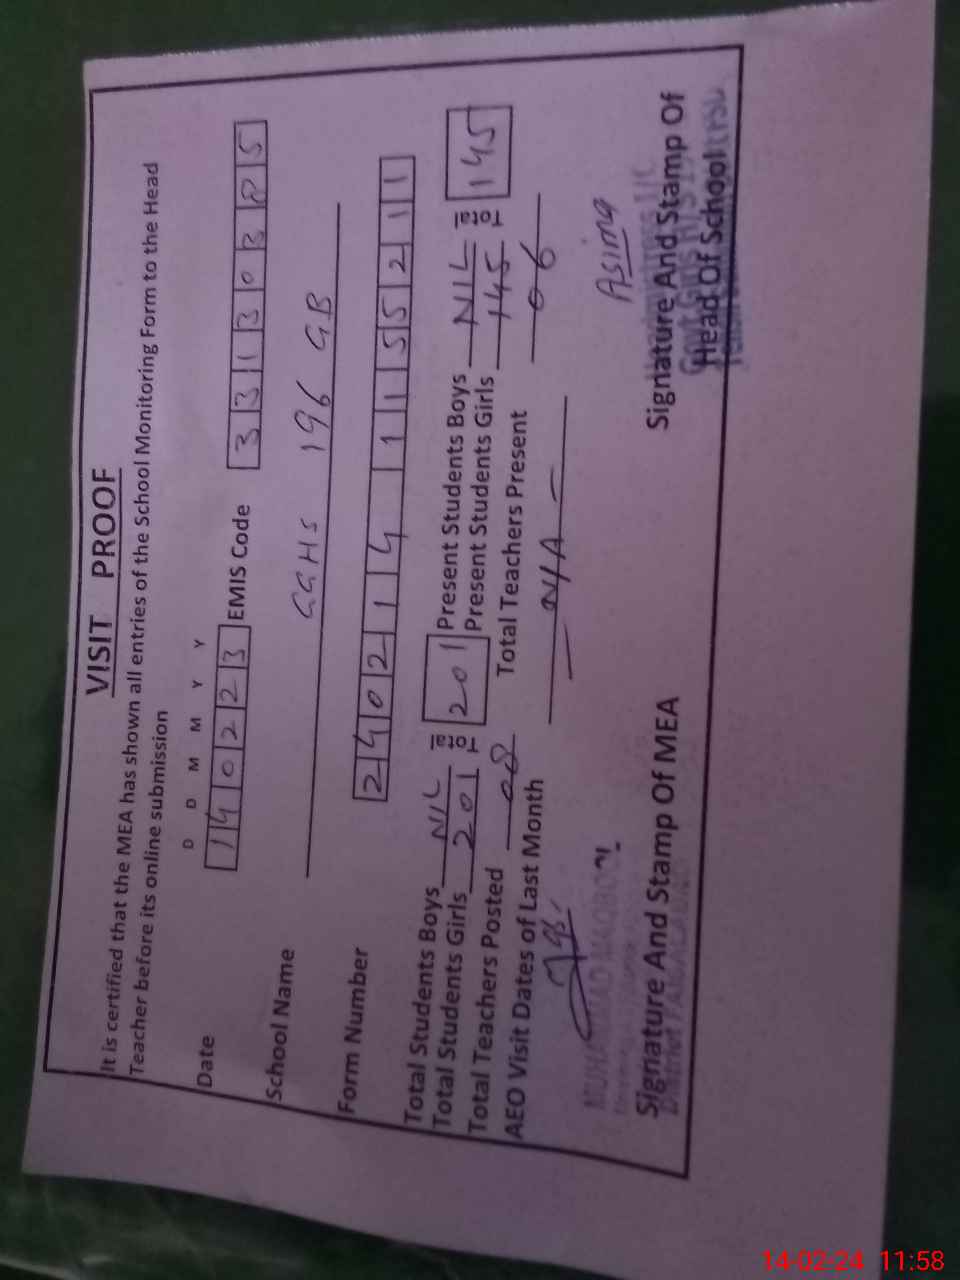 VISIT PROOF
It is certified that the MEA has shown all entries of the School Monitoring Form to the Head
Teacher before its online submission
D D M M Y Y
Date 140223 EMIS Code 33130325
School Name GGHS 196 GB
Form Number 2402141155211
Total Students Boys NIL Total 201 Present Students Boys NIL Total 145
Total Students Girls 201 Present Students Girls 145
Total Teachers Posted 08 Total Teachers Present 06
AEO Visit Dates of Last Month — N/A —
Asima
MUHAMMAD
Signature And Stamp Of MEA Signature And Stamp Of
Head Of School
14-02-24 11:58